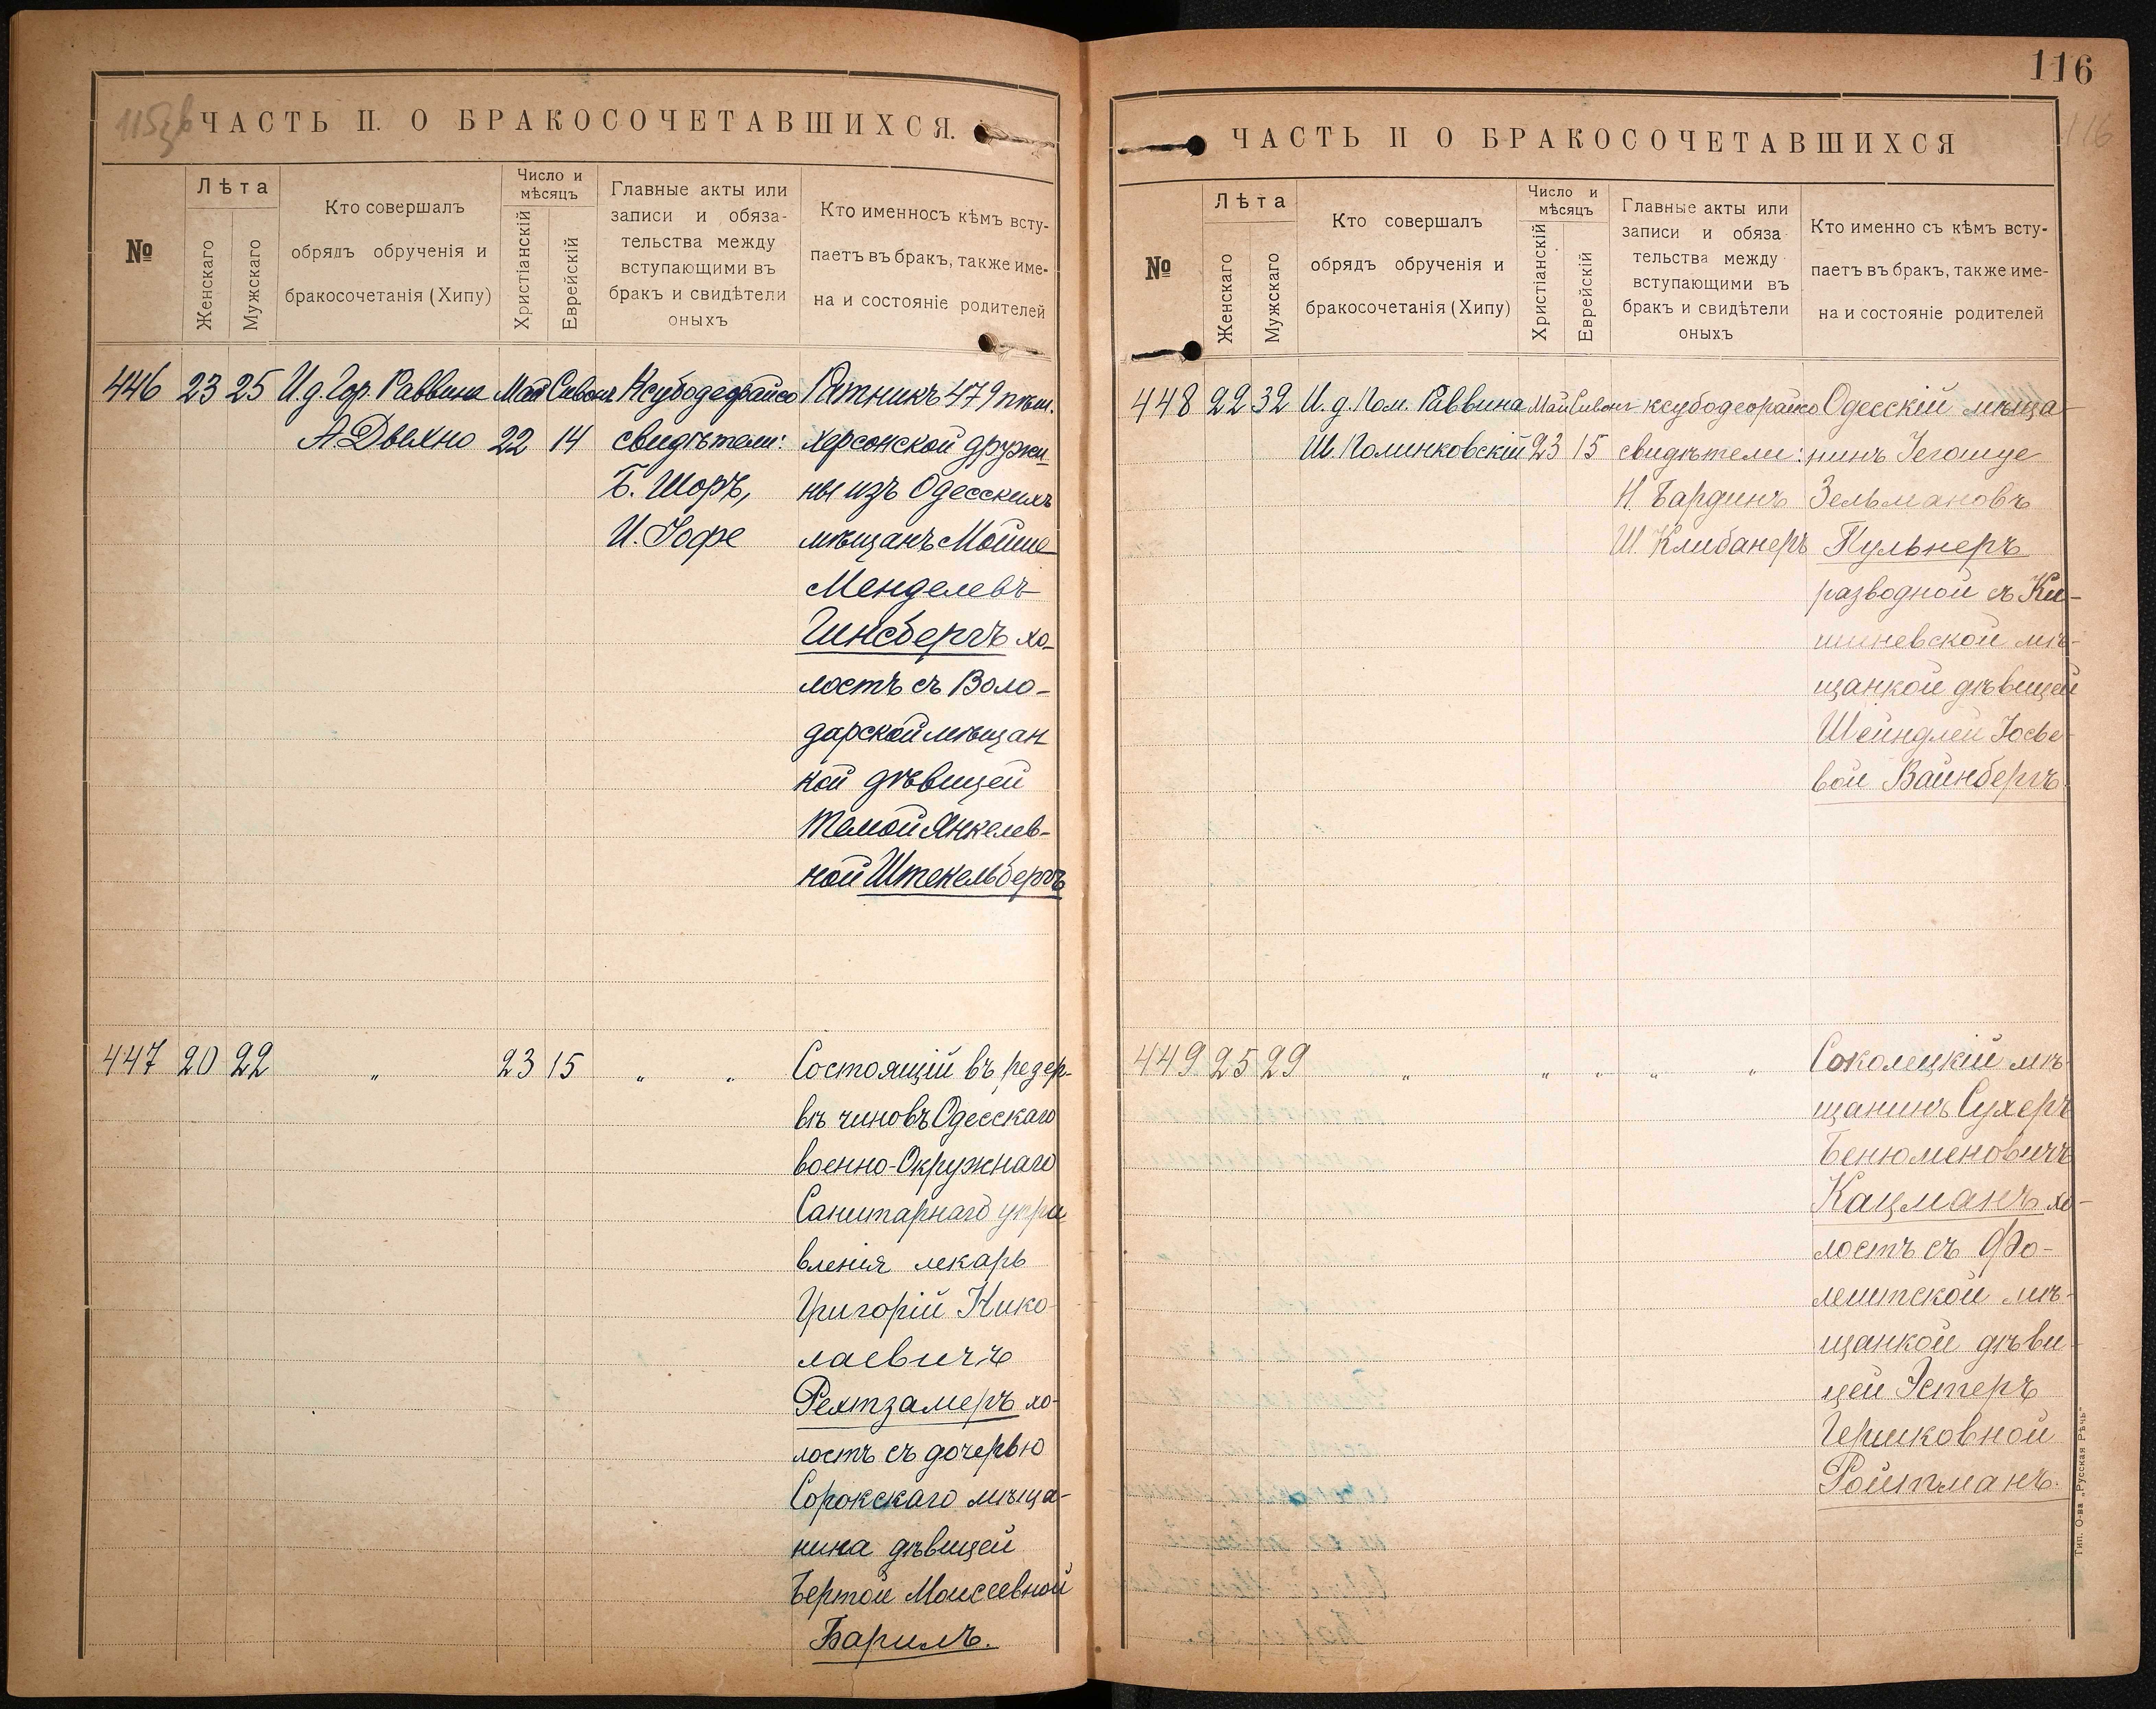 115 зв
ЧАСТЬ II. О БРАКОСОЧЕТАВШИХСЯ.
№
Лѣта
Женскаго
Мужскаго
Кто совершалъ
обрядъ обрученія и
бракосочетанія (Хипу)
Число и
мѣсяцъ
Христіанскій
Еврейскій
Главные акты или
записи и обяза-
тельства между
вступающими въ
бракъ и свидѣтели
оныхъ
Кто именносъ кѣмъ всту-
паетъ въ бракъ, также име-
на и состояніе родителей
446 23 25 И.д. Гор. Раввина Май Сивонъ Ксубодеорайсо Ратникъ 479 пѣш.
А. Двехно 22 14 свидѣтели: херсонской дружи-
Б. Шоръ, ны изъ Одесскихъ
И. Іофе мѣщанъ Мойше
Менделевъ
Гинсбергъ хо-
лостъ съ Воло-
дарской мѣщан
кой дѣвицей
Темой Янкелев-
ной Штекельбергъ
447 20 22 " 23 15 " " Состоящій въ резер-
вѣ чиновъ Одесскаго
военно-Окружнаго
Санитарнаго упра
вленія лекарь
Григорій Нико-
лаевичъ
Рехтзамеръ хо-
лостъ съ дочерью
Сорокскаго мѣща-
нина дѣвицей
Бертой Моисеевной
Барилъ.
116
116
ЧАСТЬ II О БРАКОСОЧЕТАВШИХСЯ
№
Лѣта
Женскаго
Мужскаго
Кто совершалъ
обрядъ обрученія и
бракосочетанія (Хипу)
Число и
мѣсяцъ
Христіанскій
Еврейскій
Главные акты или
записи и обяза
тельства между
вступающими въ
бракъ и свидѣтели
оныхъ
Кто именно съ кѣмъ всту-
паетъ въ бракъ, также име-
на и состояніе родителей
448 22 32 И.д. Пом. Раввина Май Сивонъ ксубодеорайсо Одесскій мѣща-
Ш. Полинковскій 23 15 свидѣтели: нинъ Іегошуе
Н. Бардинъ Зельмановъ
Ш. Клибанеръ Пульнеръ
разводной съ Ки-
шиневской мѣ-
щанкой дѣвицей
Шейндлей Іосье-
вой Вайнбергъ
449 25 29 " " " " " Соколецкій мѣ-
щанинъ Сухеръ
Бенюменовичъ
Кацманъ хо-
лостъ съ Фо-
лештской мѣ-
щанкой дѣви-
цей Эстеръ
Гершковной
Ройтманъ.
Тип. О-ва „Русская Рѣчь“